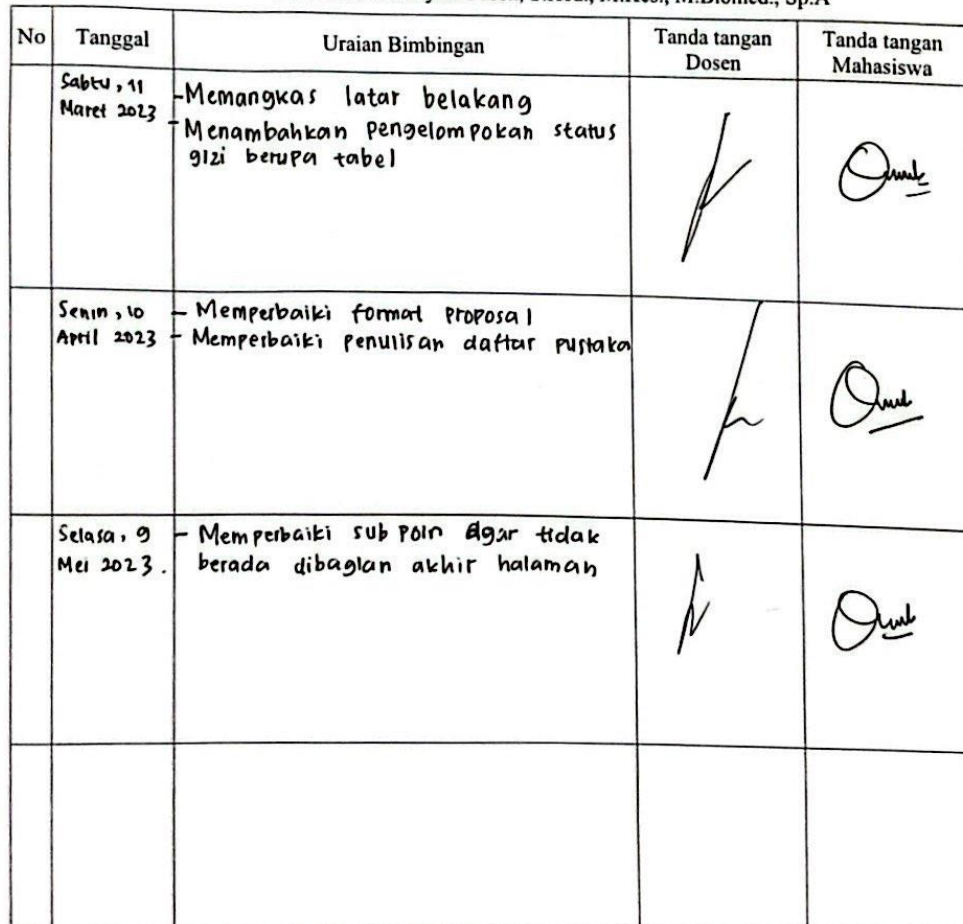 M.Biomed., Sp.A
No Tanggal Uraian Bimbingan Tanda tangan Dosen Tanda tangan Mahasiswa
Sabtu, 11
Maret 2023
-Memangkas latar belakang
-Menambahkan pengelompokan status
gizi berupa tabel
Senin, 10
April 2023
- Memperbaiki format proposal
- Memperbaiki penulisan daftar pustaka
Selasa, 9
Mei 2023.
- Memperbaiki sub poin agar tidak
berada dibagian akhir halaman